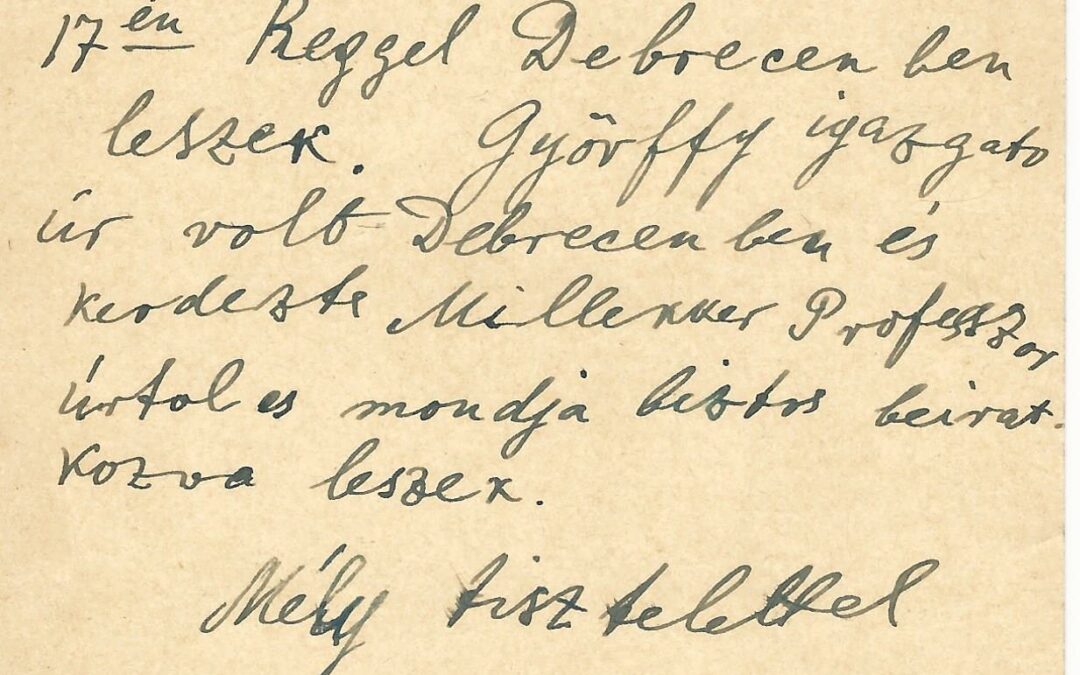 17én Reggel Debrecen ben
leszek. Györffy igazgato
úr volt Debrecen ben és
kerdezte Millekker Professzor
úrtol es mondja biztos beirat-
kozva leszek.
Mély tisztelettel